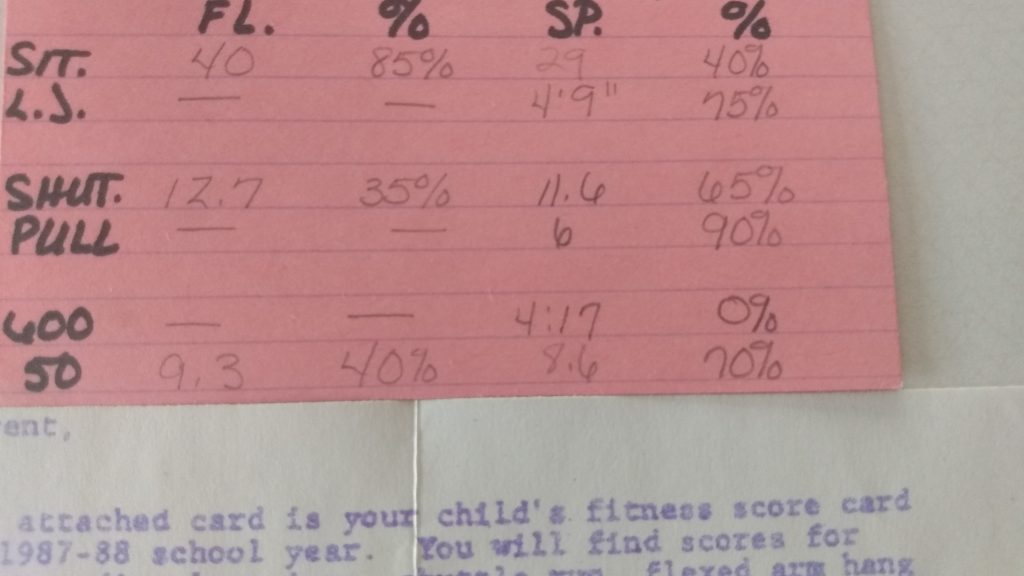 FL. % SP. %
SIT. 40 85% 29 40%
L.J. — — 4'9" 75%
SHUT. 12.7 35% 11.6 65%
PULL — — 6 90%
600 — — 4:17 0%
50 9.3 40% 8.6 70%
ent,
attached card is your child's fitness score card
1987-88 school year. You will find scores for
flexed arm hang